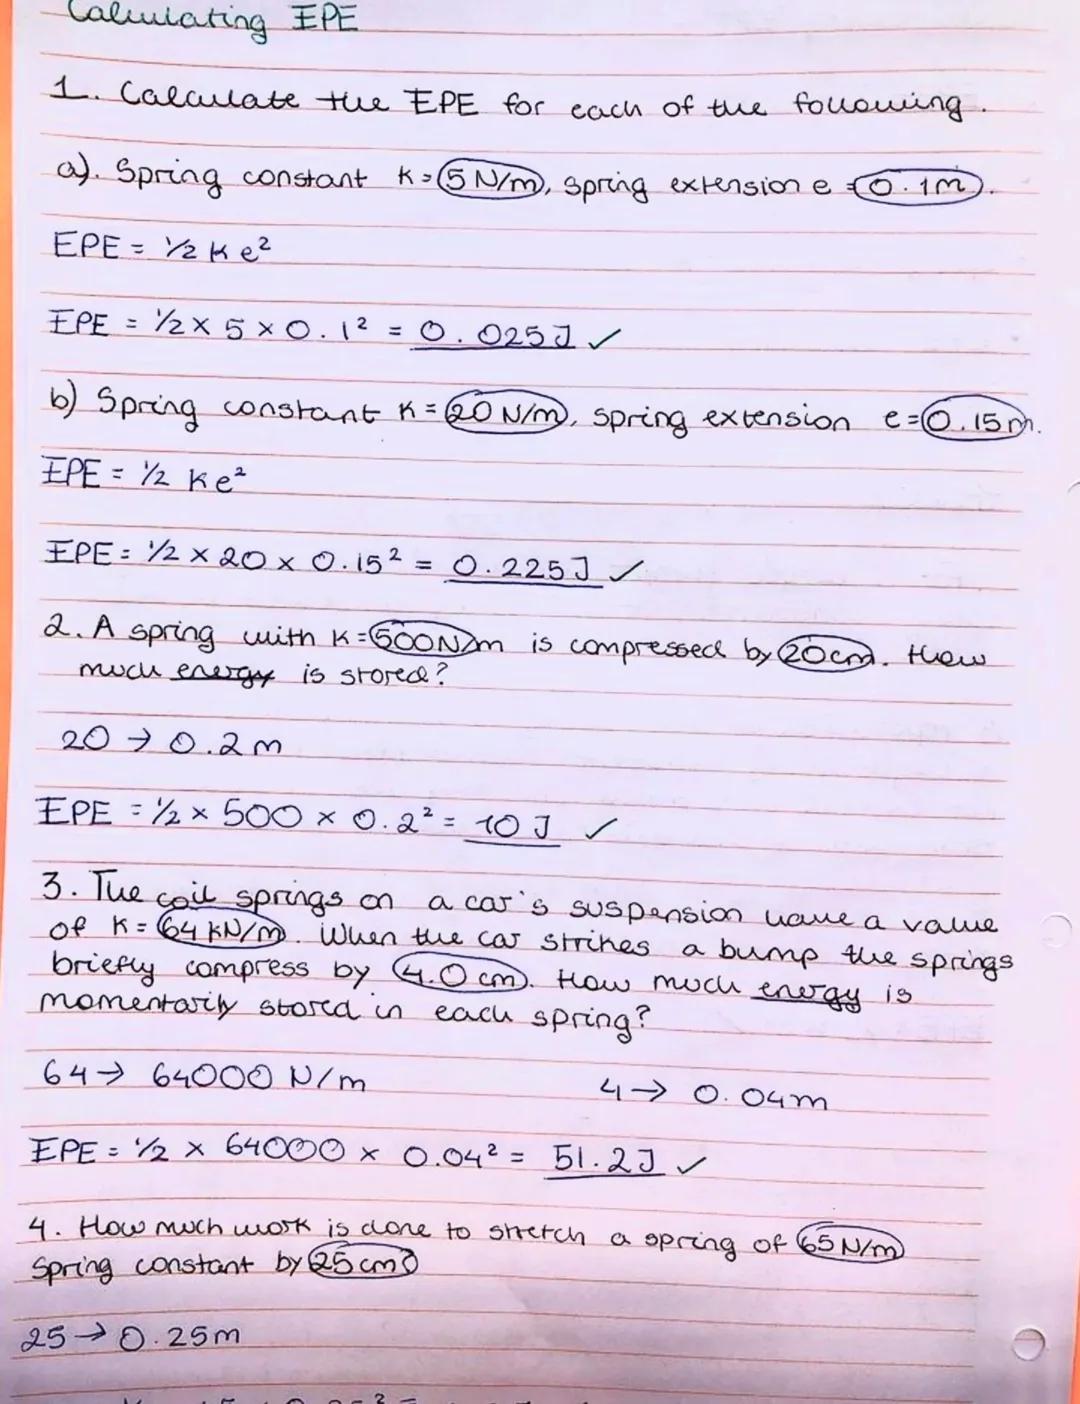 Calculating EPE
1. Calculate the EPE for each of the following.
a). Spring constant K = 5 N/m, spring extension e = 0.1m.
EPE = 1/2 K e²
EPE = 1/2 × 5 × 0.1² = 0.025J ✓
b) Spring constant K = 20 N/m, spring extension e = 0.15m.
EPE = 1/2 Ke²
EPE = 1/2 × 20 × 0.15² = 0.225J ✓
2. A spring with K = 500N/m is compressed by 20cm. How
much energy is stored?
20 → 0.2m
EPE = 1/2 × 500 × 0.2² = 10 J ✓
3. The coil springs on a car's suspension have a value
of K = 64 kN/m. When the car strikes a bump the springs
briefly compress by 4.0 cm. How much energy is
momentarily stored in each spring?
64 → 64000 N/m 4 → 0.04m
EPE = 1/2 × 64000 × 0.04² = 51.2J ✓
4. How much work is done to stretch a spring of 65 N/m
spring constant by 25cm?
25 → 0.25m